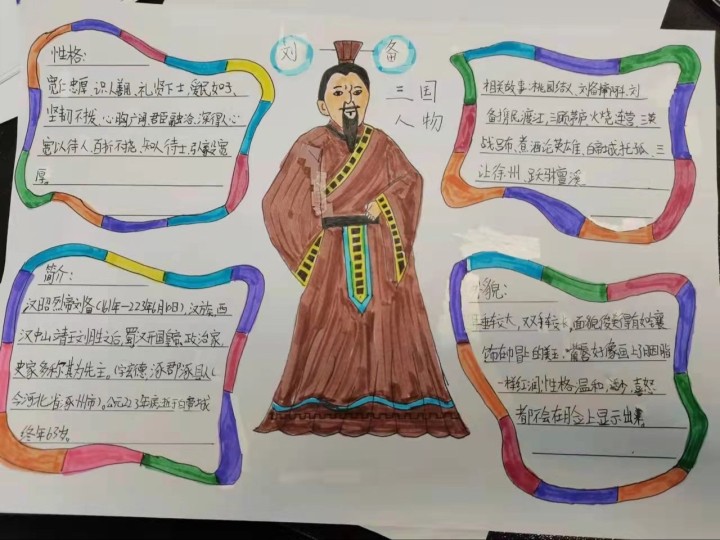 刘备
三国
人物
性格:
宽仁忠厚、识人善用、礼贤下士、爱民如子、
坚韧不拔、心胸广阔、君臣融洽、深得人心
宽以待人、百折不挠、知人待士、弘毅宽
厚。
相关故事:桃园结义、刘备摔阿斗、刘
备携民渡江、三顾茅庐、火烧连营、三英
战吕布、煮酒论英雄、白帝城托孤、三
让徐州、跃马檀溪
简介:
汉昭烈帝刘备(161年—223年6月10日),汉族,西
汉中山靖王刘胜之后,蜀汉开国皇帝,政治家
史家多称其为先主。(字玄德,涿郡涿县人(
今河北省涿州市)。公元223年病逝于白帝城
终年63岁。
貌:
耳垂较大,双手较长,面貌俊美得有如镶
饰在巾冒上的美玉,嘴唇好像画上了胭脂
一样红润,性格温和,少,喜怒
都不会在脸上显示出来